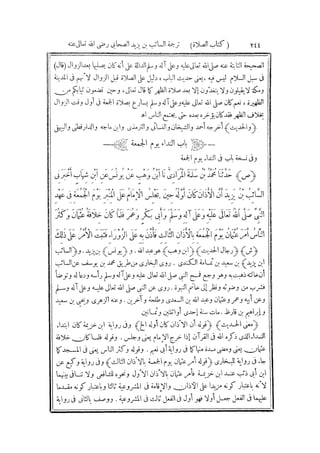 ٢٤٤ (كتاب الصلاة) ترجمة السائب بن يزيد الصحابي رضي الله تعالى عنه
الصحيحة الثابتة عنه صلى الله تعالى عليه وعلى آله وسلم الدالة على أنه كان يصليها بعد الزوال (قال)
في سبل السلام ليس فيه، يعنى حديث الباب، دليل على الصلاة قبل الزوال لأنهم في المدينة
ومكة لا يقيلون ولا يتغدون إلا بعد صلاة الظهر كما قال تعالى، وحين تضعون ثيابكم من
الظهيرة، نعم كان صلى الله تعالى عليه وعلى آله وسلم يسارع بصلاة الجمعة في أول وقت الزوال
بخلاف الظهر فقد كان يؤخره بعده حتى يجتمع الناس اه
(والحديث) أخرجه أحمد والشيخان والنسائي والترمذى وابن ماجه والدارقطنى والبيهقى
باب النداء يوم الجمعة
وفى نسخة باب فى النداء يوم الجمعة
(ص) حدثنا محمد بن سلمة المرادي نا ابن وهب عن يونس عن ابن شهاب أخبرنى
السائب بن يزيد أن الأذان كان أوله حين يجلس الإمام على المنبر يوم الجمعة فى عهد
النبي صلى الله تعالى عليه وعلى آله وسلم وأبى بكر وعمر فلما كان خلافة عثمان وكثر
الناس أمر عثمان يوم الجمعة بالأذان الثالث فأذن به على الزوراء فثبت الأمر على ذلك
(ش) (رجال الحديث) (ابن وهب) هو عبد الله. و (يونس) بن يزيد. و (السائب
ابن يزيد) بن سعيد بن ثمامة الكندى. روى البخارى من طريق محمد بن يوسف عن السائب
أن خالته ذهبت به وهو وجع فمسح النبي صلى الله تعالى عليه وعلى آله وسلم رأسه ودعا له وتوضأ
فشرب من وضوئه ونظر إلى خاتم النبوة. روى عن النبي صلى الله تعالى عليه وعلى آله وسلم
وعن أبيه وعمر وعثمان وعبد الله بن السعدى وطلحة وآخرين. وعنه الزهرى ويحيى بن سعيد
و إبراهيم بن قارظ. مات سنة إحدى أو اثنتين وثمانين
(معنى الحديث) (قوله أن الأذان كان أوله الخ) وفى رواية ابن خزيمة كان ابتداء
النداء الذى ذكره الله فى القرآن إذا خرج الإمام يعنى وجلس. وقوله فلما كان خلافة
عثمان، يعنى ومضى مدة منها كما فى رواية أبى نعيم. وقوله وكثر الناس يعنى فى المسجد كما
جاء فى رواية للبخارى (قوله أمر عثمان يوم الجمعة بالأذان الثالث) وفى رواية وكيع عن
ابن أبى ذئب عند ابن خزيمة فأمر عثمان بالأذان الأول ونحوه للشافعى ولا تنافى بينهما
لأنه باعتبار كونه مزيدا على الأذان والإقامة فى المشروعية ثالثا وباعتبار كونه مقدما
عليهما فى الفعل جعل أولا فهو أول فى الفعل ثالث فى المشروعية. ووصف بالثانى فى رواية